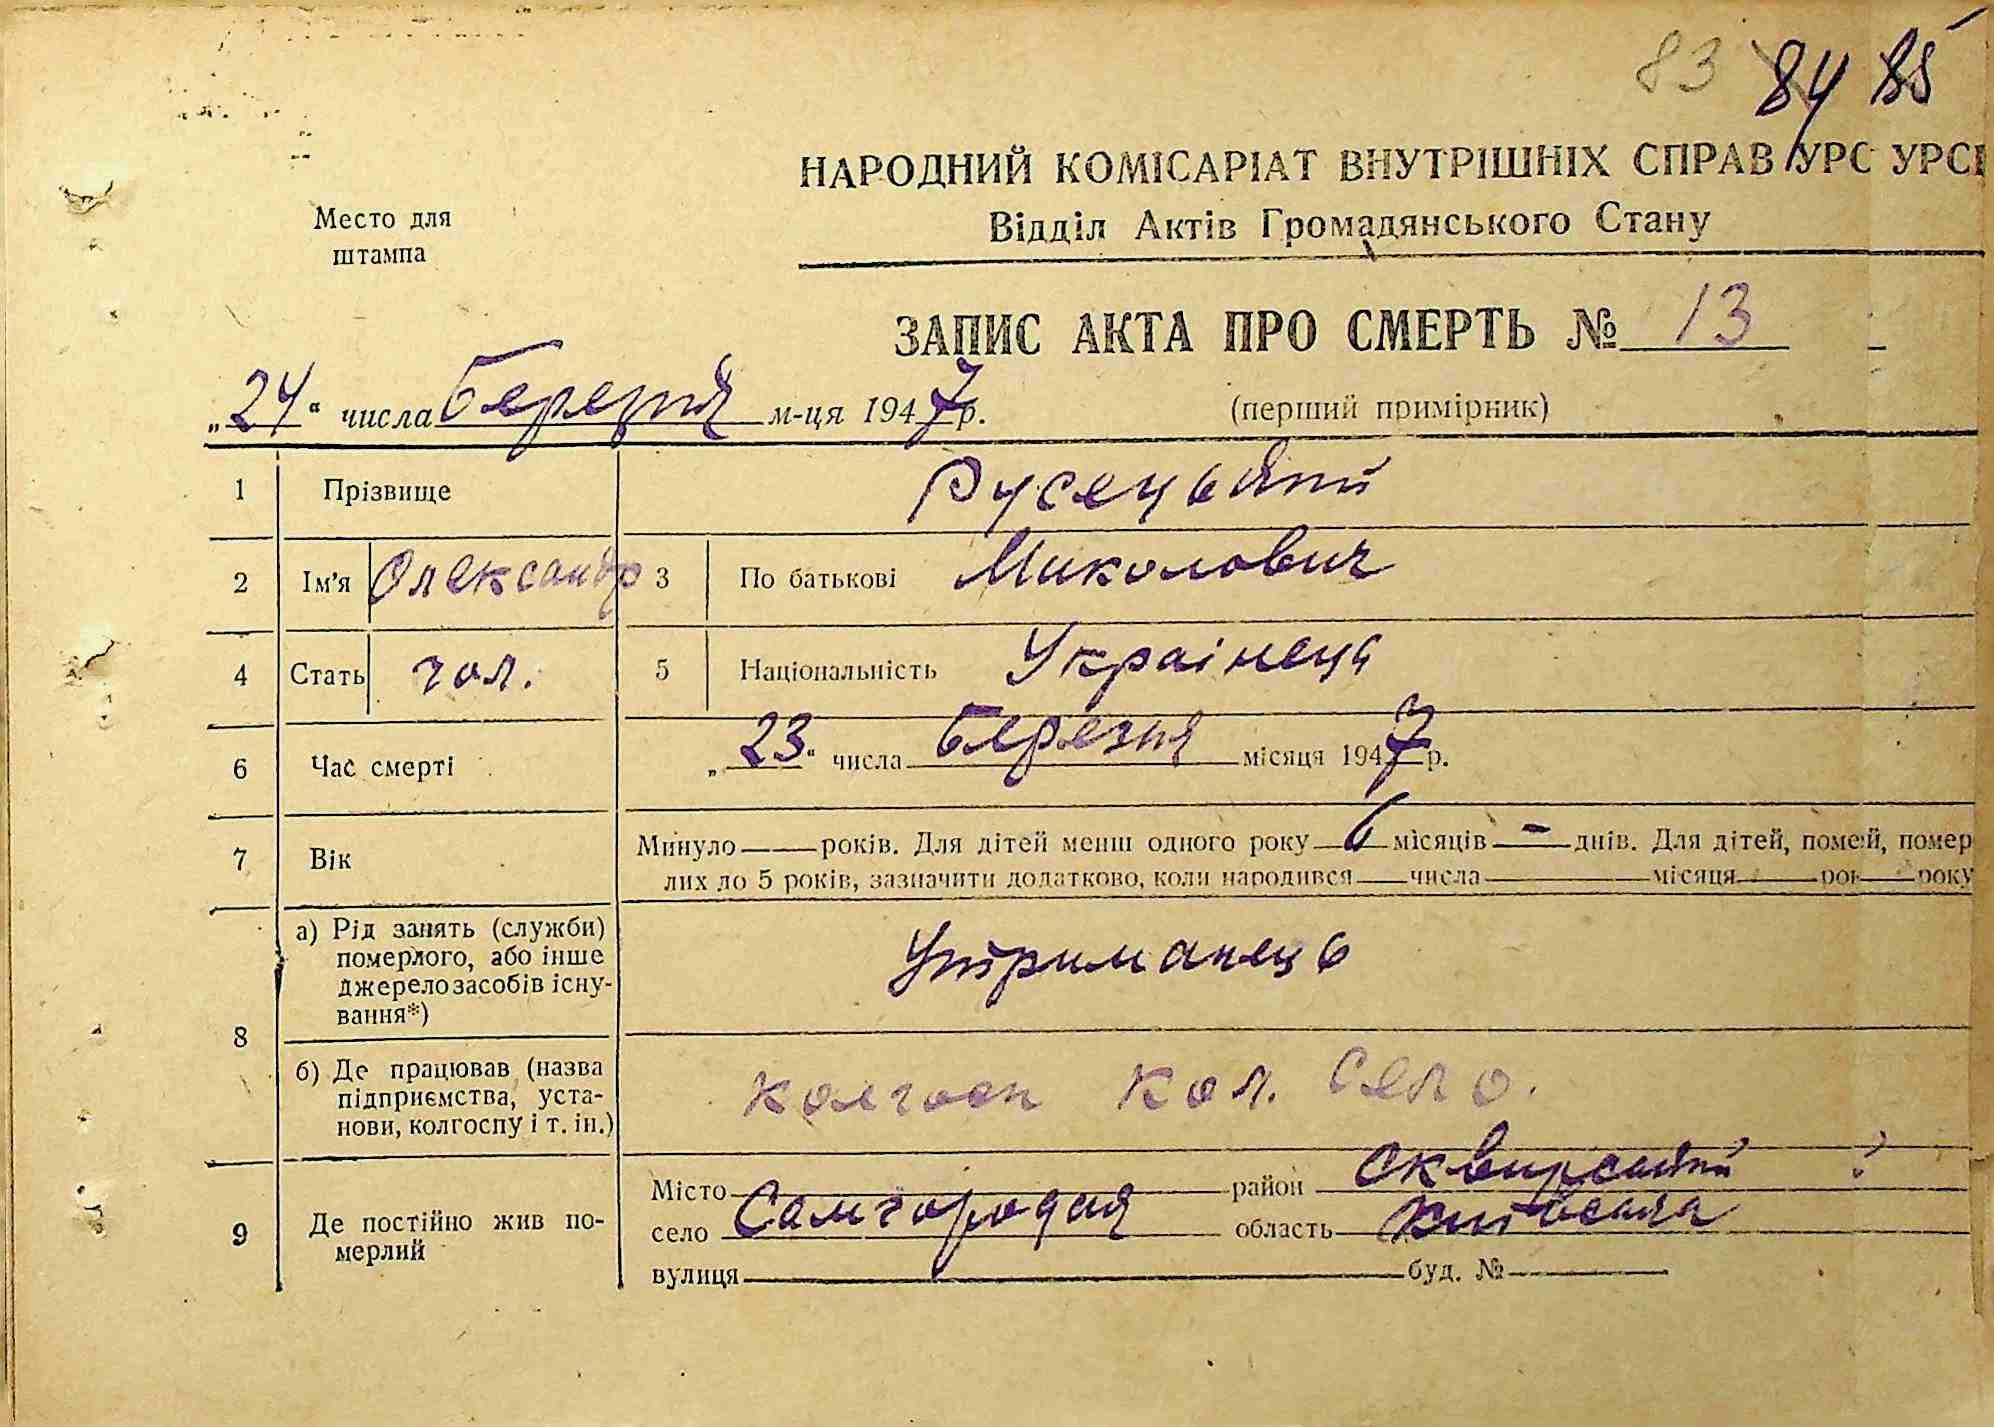 83 84 85
НАРОДНИЙ КОМІСАРІАТ ВНУТРІШНІХ СПРАВ УРС УРСР
Место для
штампа
Відділ Актів Громадянського Стану
ЗАПИС АКТА ПРО СМЕРТЬ № 13
„24“ числа березня м-ця 1947 р.
(перший примірник)
1 Прізвище Русецький
2 Ім'я Олександр 3 По батькові Миколович
4 Стать чол. 5 Національність Українець
6 Час смерті „23“ числа березня місяця 1947 р.
7 Вік Минуло — років. Для дітей менш одного року 6 місяців — днів. Для дітей, помей, помер
лих до 5 років, зазначити додатково, коли народився числа місяця рок року
8 а) Рід занять (служби)
померлого, або інше
джерело засобів існу-
вання*)
Утриманець
б) Де працював (назва
підприємства, уста-
нови, колгоспу і т. ін.)
колгосп Кол. Село.
9 Де постійно жив по-
мерлий
Місто район Сквирський
село Самгородок область Київська
вулиця буд. №